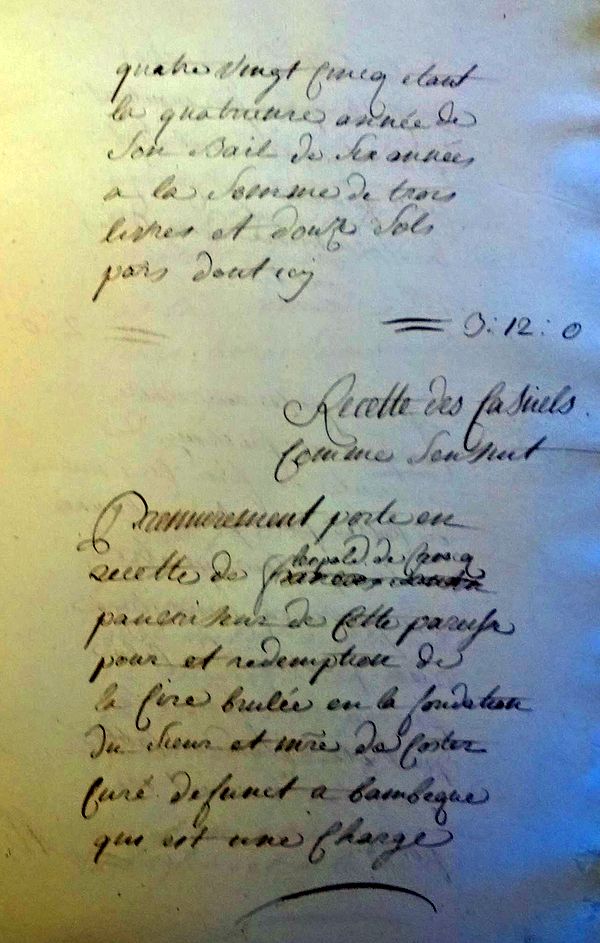 quatre Vingt Cincq etant
la quatrieme année de
Son Bail de Six années
a la Somme de trois
livres et douze Sols
paris dont icy
3 : 12 : 0
Recette des Casuels
Comme Sensuit
Premierement porte en
leopold de
recette de
pauvriseur de Cette paroisse
pour et redemption de
la Cire brulée en la fondation
du Sieur et mre de Coster
Curé defunct a bambeque
qui est une Charge